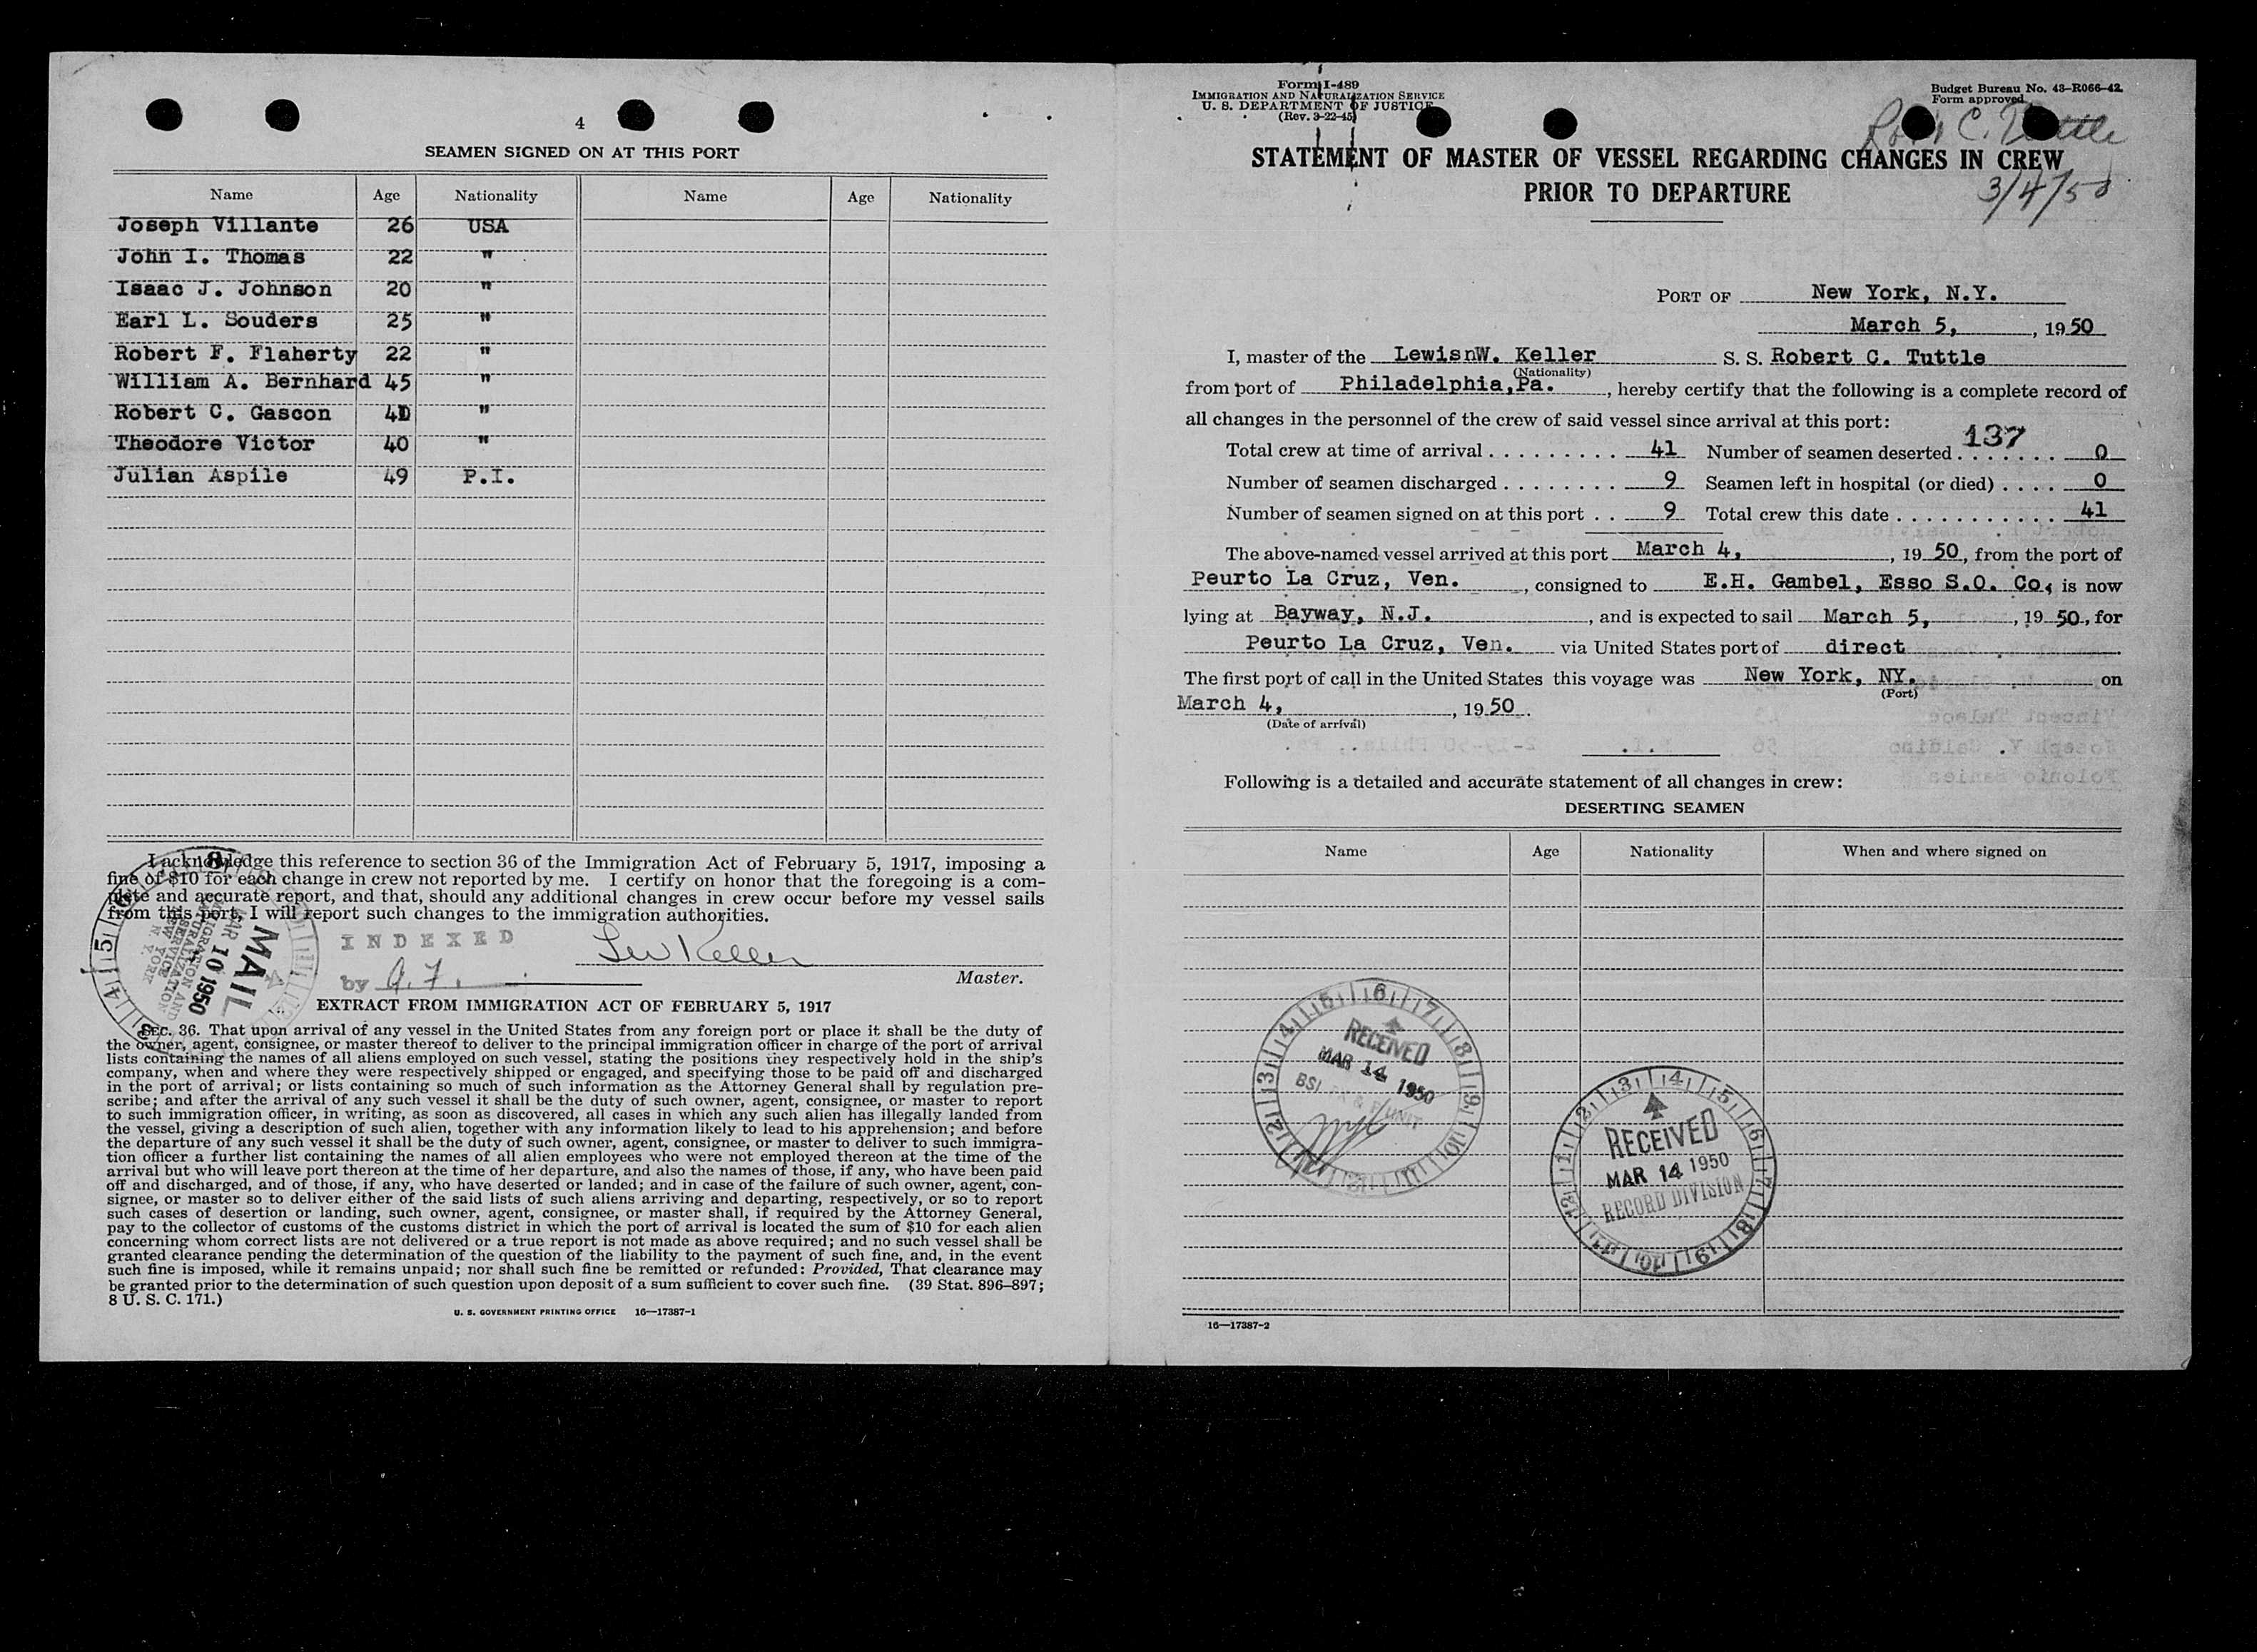 4
SEAMEN SIGNED ON AT THIS PORT
Name Age Nationality Name Age Nationality
Joseph Villante 26 USA
John I. Thomas 22 "
Isaac J. Johnson 20 "
Earl L. Souders 25 "
Robert F. Flaherty 22 "
William A. Bernhard 45 "
Robert C. Gascon "
Theodore Victor 40 "
Julian Aspile 49 P.I.
I acknowledge this reference to section 36 of the Immigration Act of February 5, 1917, imposing a
fine of $10 for each change in crew not reported by me. I certify on honor that the foregoing is a com-
plete and accurate report, and that, should any additional changes in crew occur before my vessel sails
from this port, I will report such changes to the immigration authorities.
MAIL
MAR 10 1950
IMMIGRATION AND
NATURALIZATION
SERVICE
NEW YORK
N. Y.
INDEXED
by
Lew Keller
Master.
EXTRACT FROM IMMIGRATION ACT OF FEBRUARY 5, 1917
SEC. 36. That upon arrival of any vessel in the United States from any foreign port or place it shall be the duty of
the owner, agent, consignee, or master thereof to deliver to the principal immigration officer in charge of the port of arrival
lists containing the names of all aliens employed on such vessel, stating the positions they respectively hold in the ship's
company, when and where they were respectively shipped or engaged, and specifying those to be paid off and discharged
in the port of arrival; or lists containing so much of such information as the Attorney General shall by regulation pre-
scribe; and after the arrival of any such vessel it shall be the duty of such owner, agent, consignee, or master to report
to such immigration officer, in writing, as soon as discovered, all cases in which any such alien has illegally landed from
the vessel, giving a description of such alien, together with any information likely to lead to his apprehension; and before
the departure of any such vessel it shall be the duty of such owner, agent, consignee, or master to deliver to such immigra-
tion officer a further list containing the names of all alien employees who were not employed thereon at the time of the
arrival but who will leave port thereon at the time of her departure, and also the names of those, if any, who have been paid
off and discharged, and of those, if any, who have deserted or landed; and in case of the failure of such owner, agent, con-
signee, or master so to deliver either of the said lists of such aliens arriving and departing, respectively, or so to report
such cases of desertion or landing, such owner, agent, consignee, or master shall, if required by the Attorney General,
pay to the collector of customs of the customs district in which the port of arrival is located the sum of $10 for each alien
concerning whom correct lists are not delivered or a true report is not made as above required; and no such vessel shall be
granted clearance pending the determination of the question of the liability to the payment of such fine, and, in the event
such fine is imposed, while it remains unpaid; nor shall such fine be remitted or refunded: Provided, That clearance may
be granted prior to the determination of such question upon deposit of a sum sufficient to cover such fine. (39 Stat. 896–897;
8 U. S. C. 171.)
U. S. GOVERNMENT PRINTING OFFICE 16—17387-1
Form I-489
IMMIGRATION AND NATURALIZATION SERVICE
U. S. DEPARTMENT OF JUSTICE
(Rev. 3-22-45)
Budget Bureau No. 43-R066-42.
Form approved.
C. Tuttle
3/4/50
STATEMENT OF MASTER OF VESSEL REGARDING CHANGES IN CREW
PRIOR TO DEPARTURE
PORT OF New York, N.Y.
March 5, , 1950
I, master of the LewisnW. Keller S. S. Robert C. Tuttle
(Nationality)
from port of Philadelphia,Pa. , hereby certify that the following is a complete record of
all changes in the personnel of the crew of said vessel since arrival at this port:
137
Total crew at time of arrival . . . . . . . . . 41 Number of seamen deserted . . . . . . . 0
Number of seamen discharged . . . . . . . . 9 Seamen left in hospital (or died) . . . . 0
Number of seamen signed on at this port . . 9 Total crew this date . . . . . . . . . . . 41
The above-named vessel arrived at this port March 4, , 19 50, from the port of
Peurto La Cruz, Ven. , consigned to E.H. Gambel, Esso S.O. Co, is now
lying at Bayway, N.J. , and is expected to sail March 5, , 19 50, for
Peurto La Cruz, Ven. via United States port of direct .
The first port of call in the United States this voyage was New York, NY. on
(Port)
March 4, , 19 50.
(Date of arrival)
Following is a detailed and accurate statement of all changes in crew:
DESERTING SEAMEN
Name Age Nationality When and where signed on
RECEIVED
MAR 14 1950
BSI & UNIT
RECEIVED
MAR 14 1950
RECORD DIVISION
16—17387-2